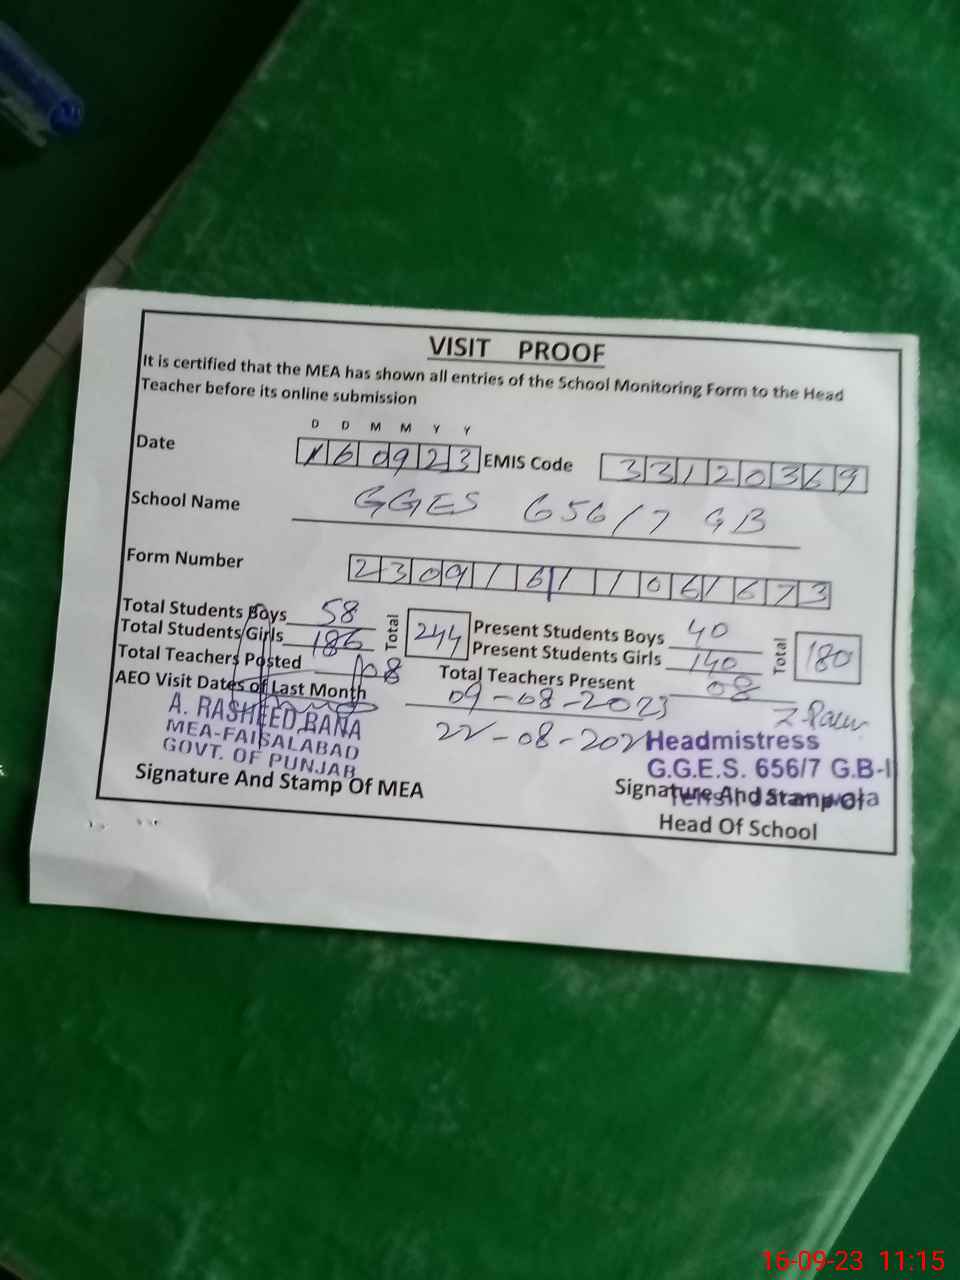 VISIT PROOF
It is certified that the MEA has shown all entries of the School Monitoring Form to the Head
Teacher before its online submission
D D M M Y Y
Date 160923 EMIS Code 33120369
School Name GGES 656/7 GB
Form Number
Total Students Boys 58 Total 244 Present Students Boys 40 Total 180
Total Students Girls 186 Present Students Girls 140
Total Teachers Posted 08 Total Teachers Present 08
AEO Visit Dates of Last Month 09-08-2023
22-08-202
A. RASHEED RANA
MEA-FAISALABAD
GOVT. OF PUNJAB
Signature And Stamp Of MEA
Headmistress
G.G.E.S. 656/7 G.B-I
Signature And Stamp Of
Head Of School
16-09-23 11:15